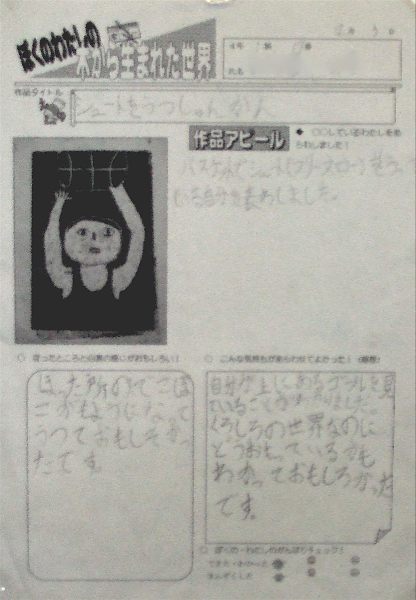 ぼくのわたしの
木から生まれた世界
4年 組 番
氏名
作品タイトル
シュートをうつしゅんかん
作品アピール
◆ ○○しているわたしをあ
らわしました!
バスケットでシュート(フリースロー)をう
っている自分を表わしました。
○ ほったところと白黒の感じがおもしろい!
○ こんな気持ちがあらわせてよかった!(感想)
ほった所のでこぼ
こがもようになって
うつておもしろかっ
たです。
自分が上にあるゴールを見
ていることが
くろしろの世界なのに
どうおもっているかも
わかっておもしろかった
です。
○ ぼくの・わたしのがんばりチェック!
できた・わかった
まんぞくした